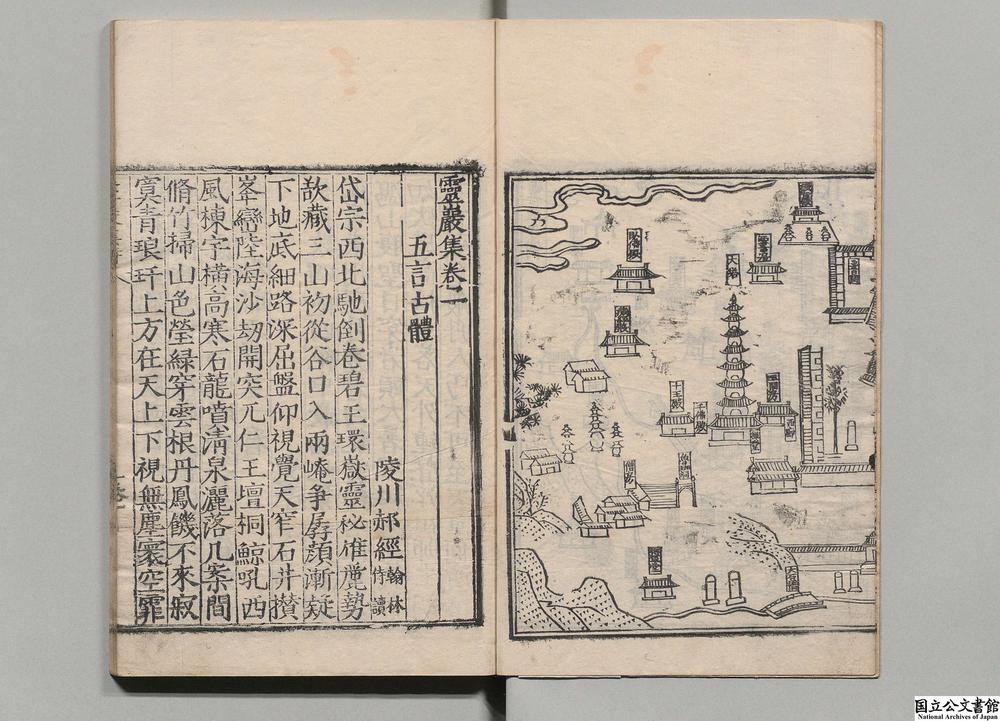 十王殿
千佛殿
靈巖集卷二
五言古體
陵川郝經翰林侍讀
岱宗西北馳倒卷碧王環嶽靈秘雄麗勢
欲藏三山初從谷口入兩崦爭孱顔漸疑
下地底細路深屈盤仰視覺天窄石井攢
峯巒陸海沙劫開突兀仁王壇桐鯨吼西
風棟宇橫高寒石龍噴清泉灑落几案間
脩竹掃山色瑩綠穿雲根丹鳳饑不來寂
寞青琅玕上方在天上下視無塵寰空霏
国立公文書館
National Archives of Japan